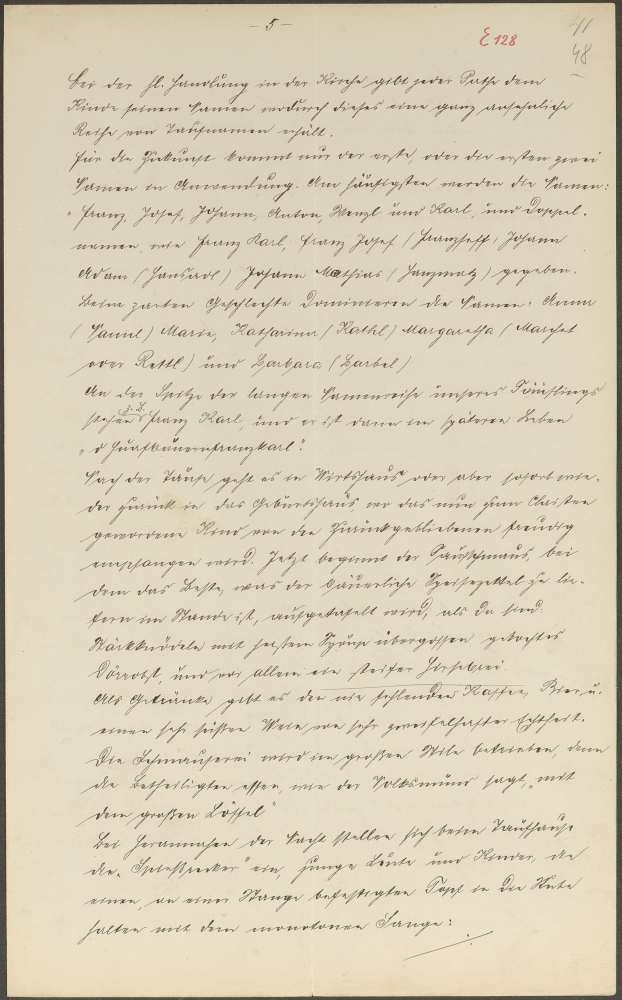 - 5 -
E 128
41
48
Bei der hl. Handlung in der Kirche gibt jeder Pathe dem
Kinde seinen Namen wodurch dieses eine ganz ansehnliche
Reihe von Taufnamen erhält.
Für die Zukunft kommt nur der erste, oder die ersten zwei
Namen in Anwendung. Am häufigsten werden die Namen:
Franz, Josef, Johann, Anton, Wenzl und Karl, und Doppel-
namen, wie Franz Karl, Franz Josef (Franzseff), Johann
Adam (Hansadl) Johann Mathias (Hanzmatz) gegeben.
Beim zarten Geschlechte dominieren die Namen: Anna
(Nannl) Marie, Katharina (Kathl) Margaretha (Marghet
oder Rettl) und Barbara (Barbel)
An der Spitze der langen Namenreihe unseres Täuflings
stehen z. B. Franz Karl, und er ist dann im späteren Leben
„d'
Nach der Taufe geht es in Wirtshaus oder aber sofort wie-
der zurück in das Geburtshaus wo das nun zum Christen
gewordene Kind von den Zurückgebliebenen freudig
empfangen wird. Jetzt beginnt der Taufschmaus, bei
dem das Beste, was der bäuerliche Speisezettel zu lie-
fern im Stande ist, aufgetafelt wird, als da sind:
mit heißem übergossen gekochtes
Dörrobst, und vor allem ein steifer Hirsebrei.
Als Getränke gibt es den nie fehlenden Kaffee, Bier u.
einen sehr süßen Wein von sehr zweifelhafter Echtheit.
Die Schmauserei wird im großen Stile betrieben, denn
die Betheiligten essen, wie der Volksmund sagt, „mit
dem großen Löffel"
Bei Herannahen der Nacht stellen sich beim Taufhause
die „ ein, junge Leute und Kinder, die
einen, an einer Stange befestigten Topf in die
halten mit dem monotonen Sange: